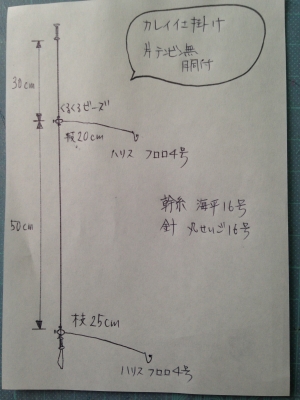 カレイ仕掛け
片テンビン無
胴付
30cm
くるくるビーズ
枝20cm
ハリス フロロ4号
50cm
幹糸 海平16号
針 丸せいご16号
枝25cm
ハリス フロロ4号